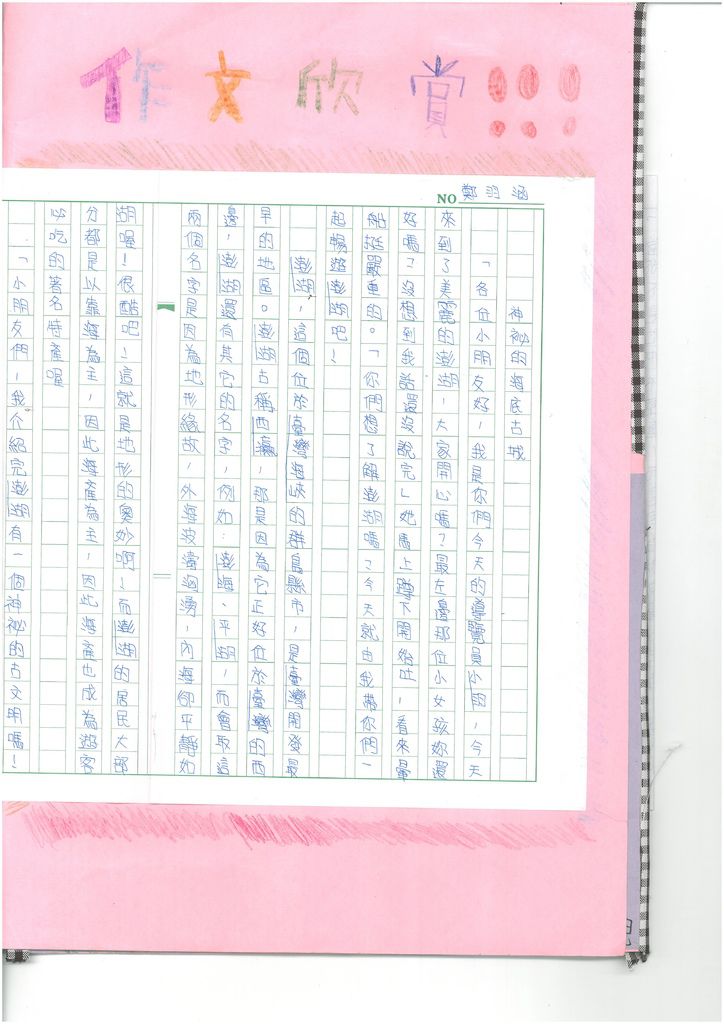 作文欣賞!!!
NO 鄭羽涵
神祕的海底古城
「各位小朋友好,我是你們今天的導覽員小明,今天
來到了美麗的澎湖,大家開心嗎?最左邊那位小女孩妳還
好嗎?沒想到我話還沒說完」她馬上蹲下開始吐,看來暈
船挺嚴重的。「你們想了解澎湖嗎?今天就由我帶你們一
起暢遊澎湖吧!
澎湖,這個位於臺灣海峽的群島縣市,是臺灣開發最
早的地區。澎湖古稱西瀛,那是因為它正好位於臺灣的西
邊,澎湖還有其它的名字,例如:澎海、平湖,而會取這
兩個名字是因為地形緣故,外海波濤洶湧,內海卻平靜如
湖喔!很酷吧!這就是地形的奧妙啊!而澎湖的居民大部
分都是以靠海為主,因此海產為主,因此海產也成為遊客
必吃的著名特產喔
「小朋友們!我介紹完澎湖有一個神祕的古文明嗎!